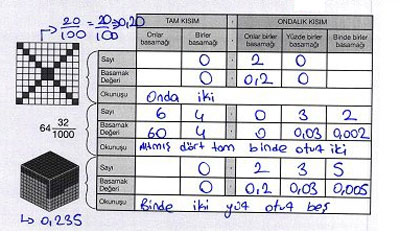 20/100 = 20/100 = 0,20
TAM KISIM . ONDALIK KISIM
Onlar basamağı Birler basamağı . Onda birler basamağı Yüzde birler basamağı Binde birler basamağı
Sayı 0 . 2 0
Basamak Değeri 0 . 0,2 0
Okunuşu Onda iki
64 32/1000
6 4 . 0 3 2
Basamak Değeri 60 4 . 0 0,03 0,002
Okunuşu Altmış dört tam binde otuz iki
Sayı 0 . 2 3 5
Basamak Değeri 0 . 0,2 0,03 0,005
Okunuşu Binde iki yüz otuz beş
↳ 0,235